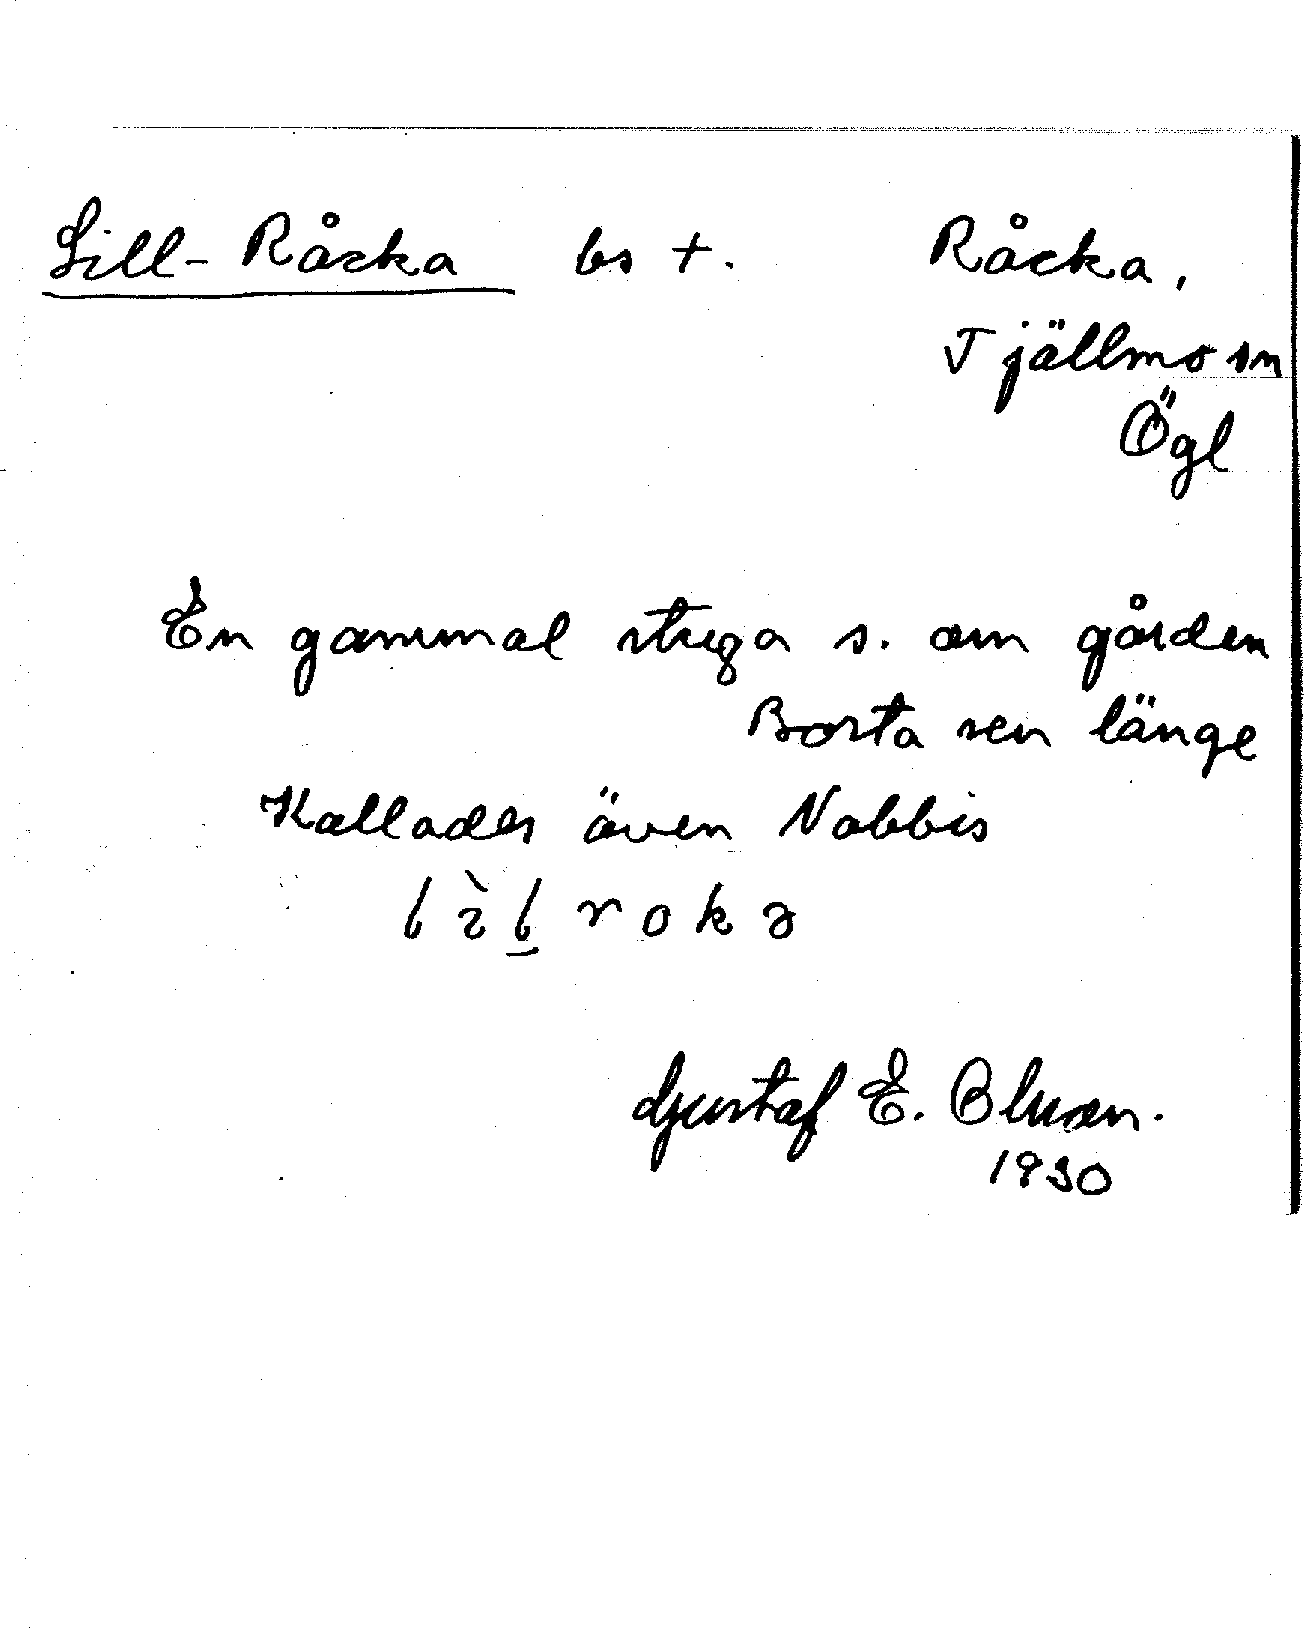 Lill-Råcka bs +. Råcka,
Tjällmo sn
Ögl
En gammal stuga s. om gården
Borta sen länge
Kallades även Nabbis
Gustaf E. Bluan.
1930